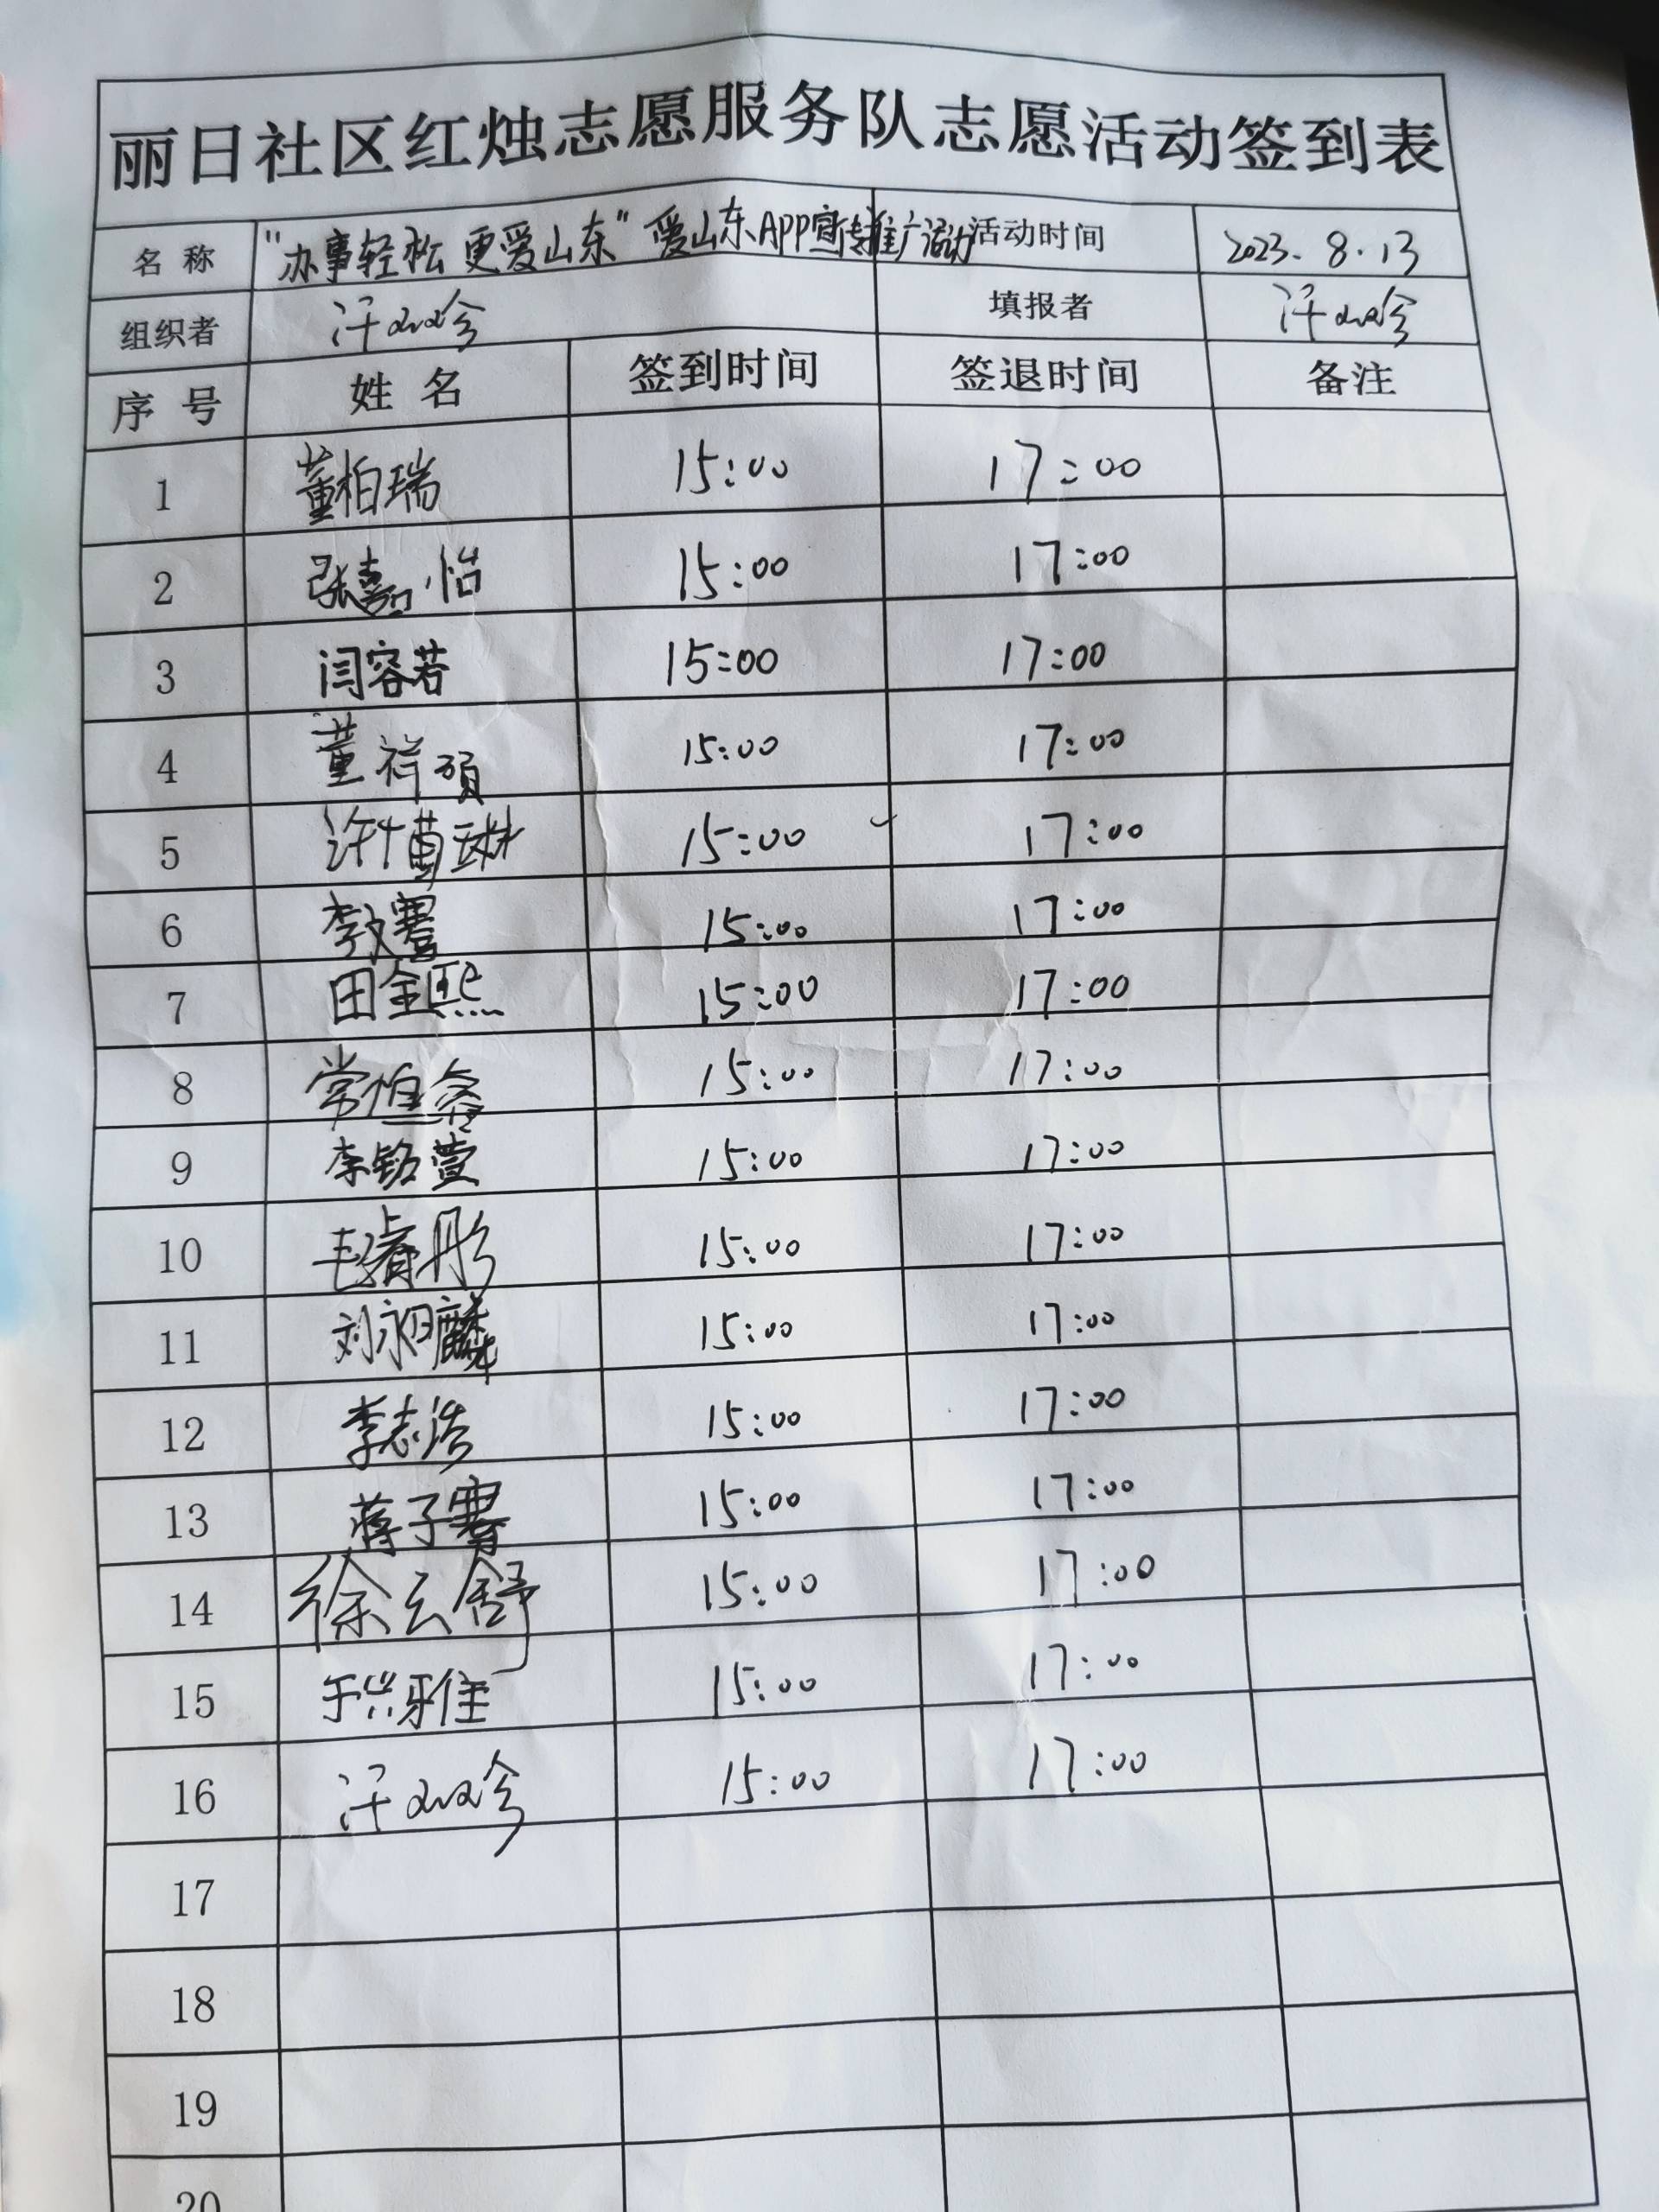 丽日社区红烛志愿服务队志愿活动签到表
名 称 "办事轻松 更爱山东" 爱山东APP宣传推广活动 活动时间 2023.8.13
组织者 汗双玲 填报者 汗双玲
序 号 姓 名 签到时间 签退时间 备注
1 董柏瑞 15:00 17:00
2 张嘉怡 15:00 17:00
3 闫容若 15:00 17:00
4 董祥硕 15:00 17:00
5 许博琳 15:00 17:00
6 李文 15:00 17:00
7 田金熙 15:00 17:00
8 常恒 15:00 17:00
9 李铭萱 15:00 17:00
10 毛睿彤 15:00 17:00
11 刘昶麟 15:00 17:00
12 李志浩 15:00 17:00
13 蒋子骞 15:00 17:00
14 徐云舒 15:00 17:00
15 于兴雅 15:00 17:00
16 汗双玲 15:00 17:00
17
18
19
20